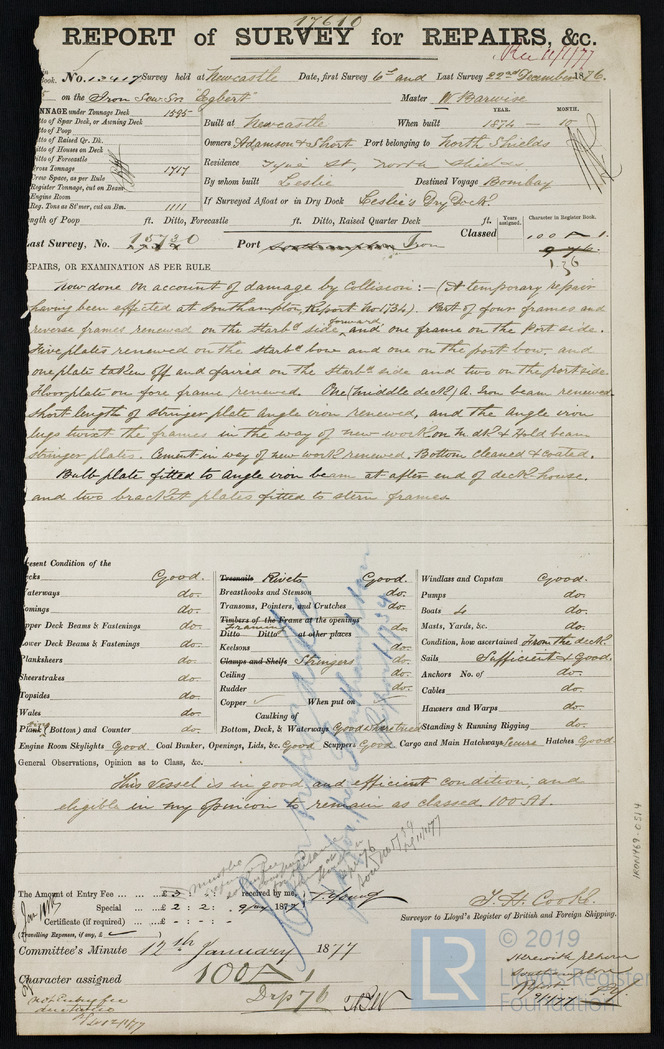 17610
REPORT of SURVEY for REPAIRS, &c.
No. 13417 Survey held at Newcastle Date, first Survey 6th and Last Survey 22nd December 1876.
on the Iron Screw Sr "Egbert" Master W Barwise
TONNAGE under Tonnage Deck 1595
Ditto of Spar Deck, or Awning Deck
Ditto of Poop
Ditto of Raised Qr. Dk.
Ditto of Houses on Deck
Ditto of Forecastle
Gross Tonnage 1717
Crew Space, as per Rule
Register Tonnage, cut on Beam
Engine Room
Reg. Tons as St'mer, cut on Bm. 1111
YEAR. MONTH.
Built at Newcastle When built 1874 - 10
Owners Adamson & Short Port belonging to North Shields
Residence Tyne St, North Shields
By whom built Leslie Destined Voyage Bombay
If Surveyed Afloat or in Dry Dock Leslie's Dry Dock
Length of Poop ft. Ditto, Forecastle ft. Ditto, Raised Quarter Deck ft.
Years assigned. Character in Register Book.
Classed 100 A 1.
9 76
Last Survey, No. 15730 Port Southampton Iron
REPAIRS, OR EXAMINATION AS PER RULE
Now done on account of damage by Collision:- (A temporary repair
having been effected at Southampton, Report No 1734). Part of four frames and
reverse frames renewed on the Starbd side forward, and one frame on the Port side.
Five plates renewed on the Starbd bow and one on the port bow, and
one plate taken off and faired on the Starbd side and two on the port side.
Floorplate on fore frame renewed. One (middle deck) A. Iron beam renewed.
Short length of stringer plate angle iron renewed, and the angle iron
lugs twixt the frames in the way of new work on M. dk & Hold beam
stringer plates. Cement in way of new work renewed. Bottom cleaned & coated.
Bulb plate fitted to angle iron beam at after end of deck house.
and two bracket plates fitted to stern frames
Present Condition of the
Decks Good.
Waterways do.
Comings do.
Upper Deck Beams & Fastenings do.
Lower Deck Beams & Fastenings do.
Planksheers do.
Sheerstrakes do.
Topsides do.
Wales do.
Plank (Bottom) and Counter do.
Treenails Rivets Good.
Breasthooks and Stemson do.
Transoms, Pointers, and Crutches do.
Timbers of the Frame at the openings do.
Framing
Ditto Ditto at other places do.
Keelsons do.
Clamps and Shelfs Stringers do.
Ceiling do.
Rudder do.
Copper When put on
Caulking of
Bottom, Deck, & Waterways Good
Windlass and Capstan Good.
Pumps do.
Boats do.
Masts, Yards, &c. do.
Condition, how ascertained From the deck.
Sails Sufficient & Good.
Anchors No. of do.
Cables do.
Hawsers and Warps do.
Standing & Running Rigging do.
Engine Room Skylights Good. Coal Bunker, Openings, Lids, &c. Good Scuppers Good Cargo and Main Hatchways Secure Hatches Good
General Observations, Opinion as to Class, &c.
This Vessel is in good and efficient condition, and
eligible in my opinion to remain as classed 100 A1.
The Amount of Entry Fee ... £ 3 : : received by me,
Special ... £ 2 : 2 :
Certificate (if required) ... £ - : - : -
(Travelling Expenses, if any, £ )
J. H. Cooke.
Surveyor to Lloyd's Register of British and Foreign Shipping.
Committee's Minute 12th January 1877
Character assigned 100 A 1
Drp 76
IRON1469-0514
LR
© 2019
Lloyd's Register
Foundation